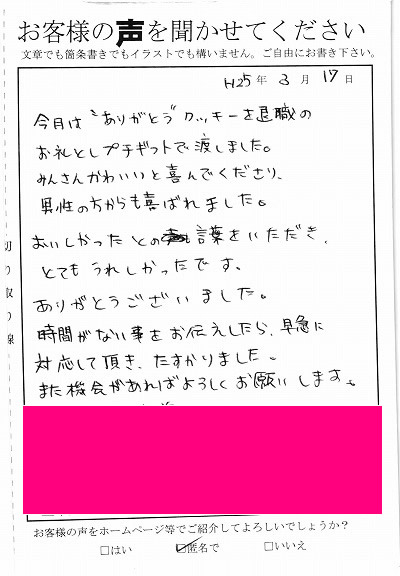 お客様の声を聞かせてください
文章でも箇条書きでもイラストでも構いません。ご自由にお書き下さい。
H25年 3月 17日
今月は"ありがとう"クッキーを退職の
お礼としプチギフトで渡しました。
みんさんかわいいと喜んでくださり、
男性の方からも喜ばれました。
おいしかったとの言葉をいただき、
とてもうれしかったです。
ありがとうございました。
時間がない事をお伝えしたら、早急に
対応して頂き、たすかりました。
また機会があればよろしくお願いします。
切り取り線
お客様の声をホームページ等でご紹介してよろしいでしょうか?
□はい ☑匿名で □いいえ